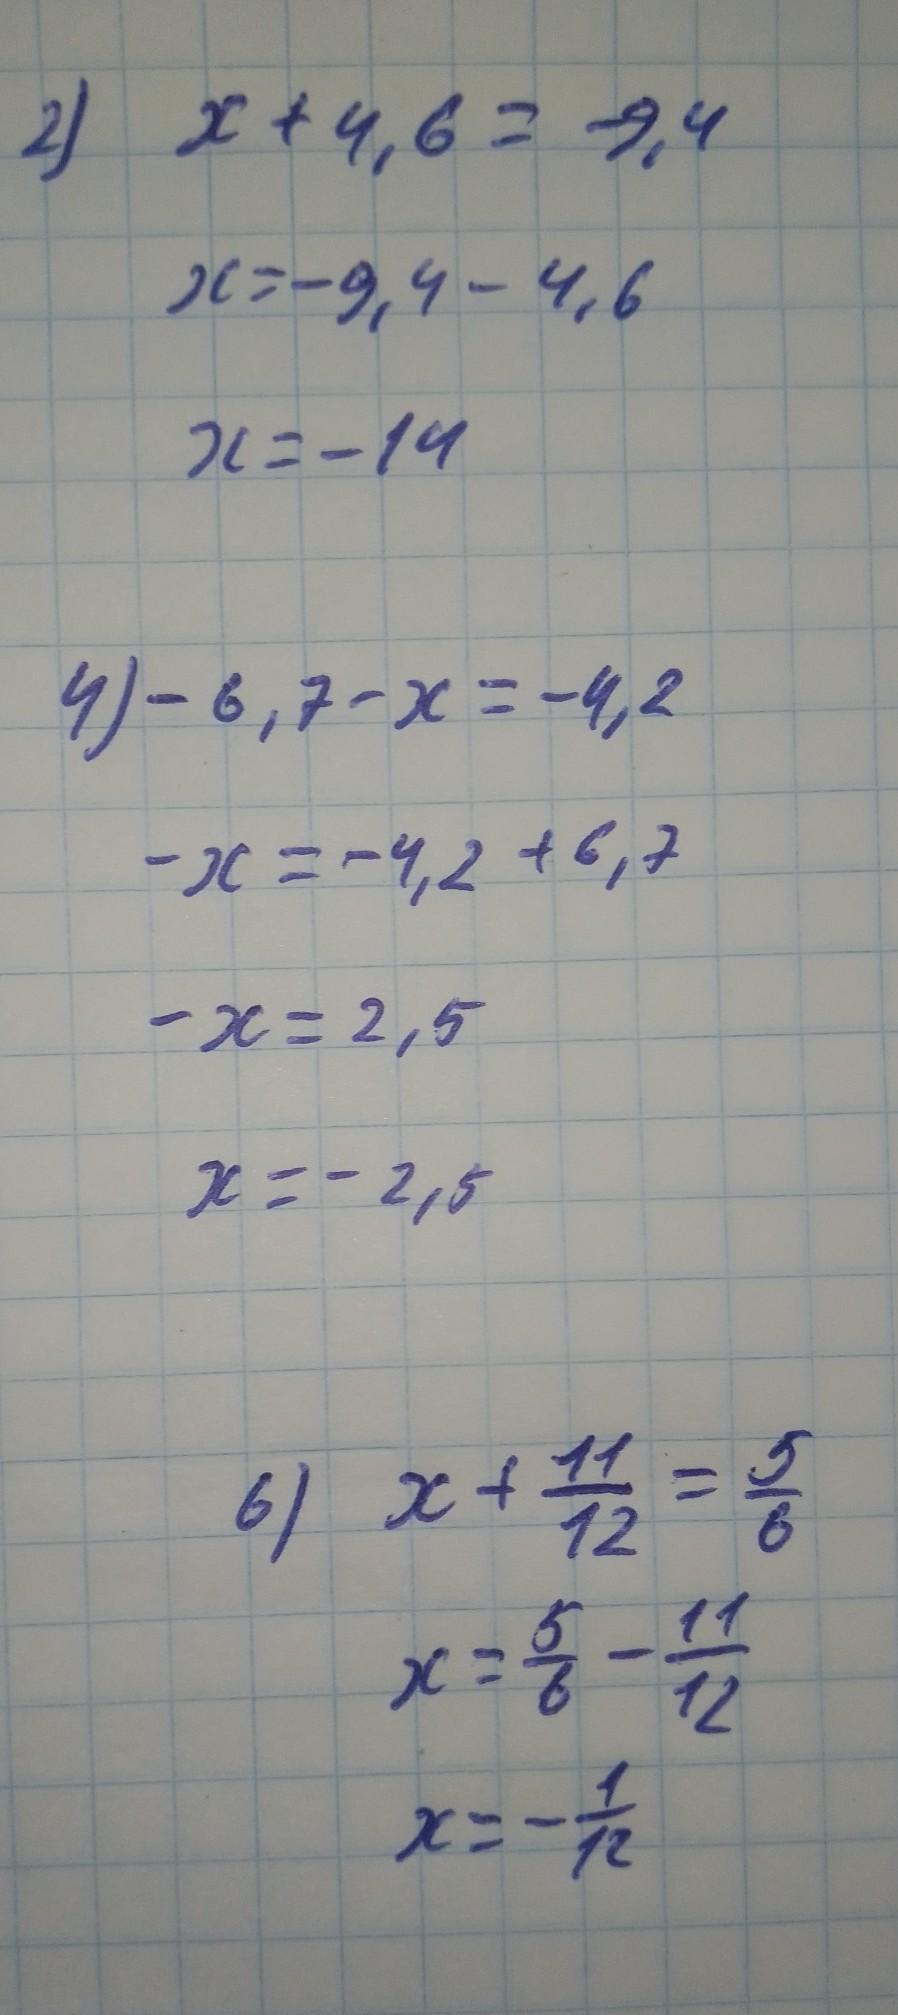 2) x + 4,6 = -9,4
x = -9,4 - 4,6
x = -14
4) -6,7 - x = -4,2
-x = -4,2 + 6,7
-x = 2,5
x = -2,5
6) x + 11/12 = 5/6
x = 5/6 - 11/12
x = -1/12